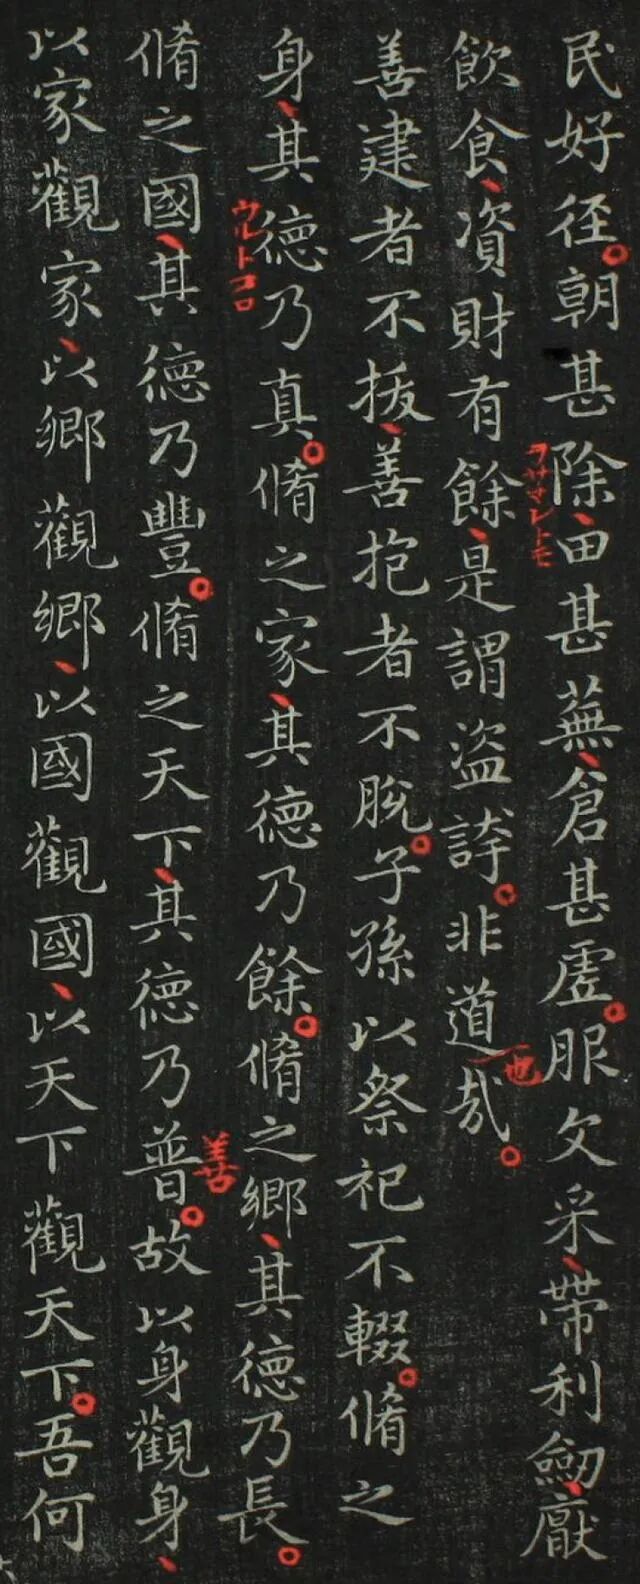 民好径。朝甚除、田甚蕪、倉甚虚。服文采、帶利劒、厭
飲食、資財有餘、是謂盜誇。非道也哉。
善建者不拔、善抱者不脫。子孫以祭祀不輟。脩之
身、其德乃真。脩之家、其德乃餘。脩之鄉、其德乃長。
脩之國、其德乃豐。脩之天下、其德乃普。故以身觀身、
以家觀家、以鄉觀鄉、以國觀國、以天下觀天下。吾何
ウルトコロ
善